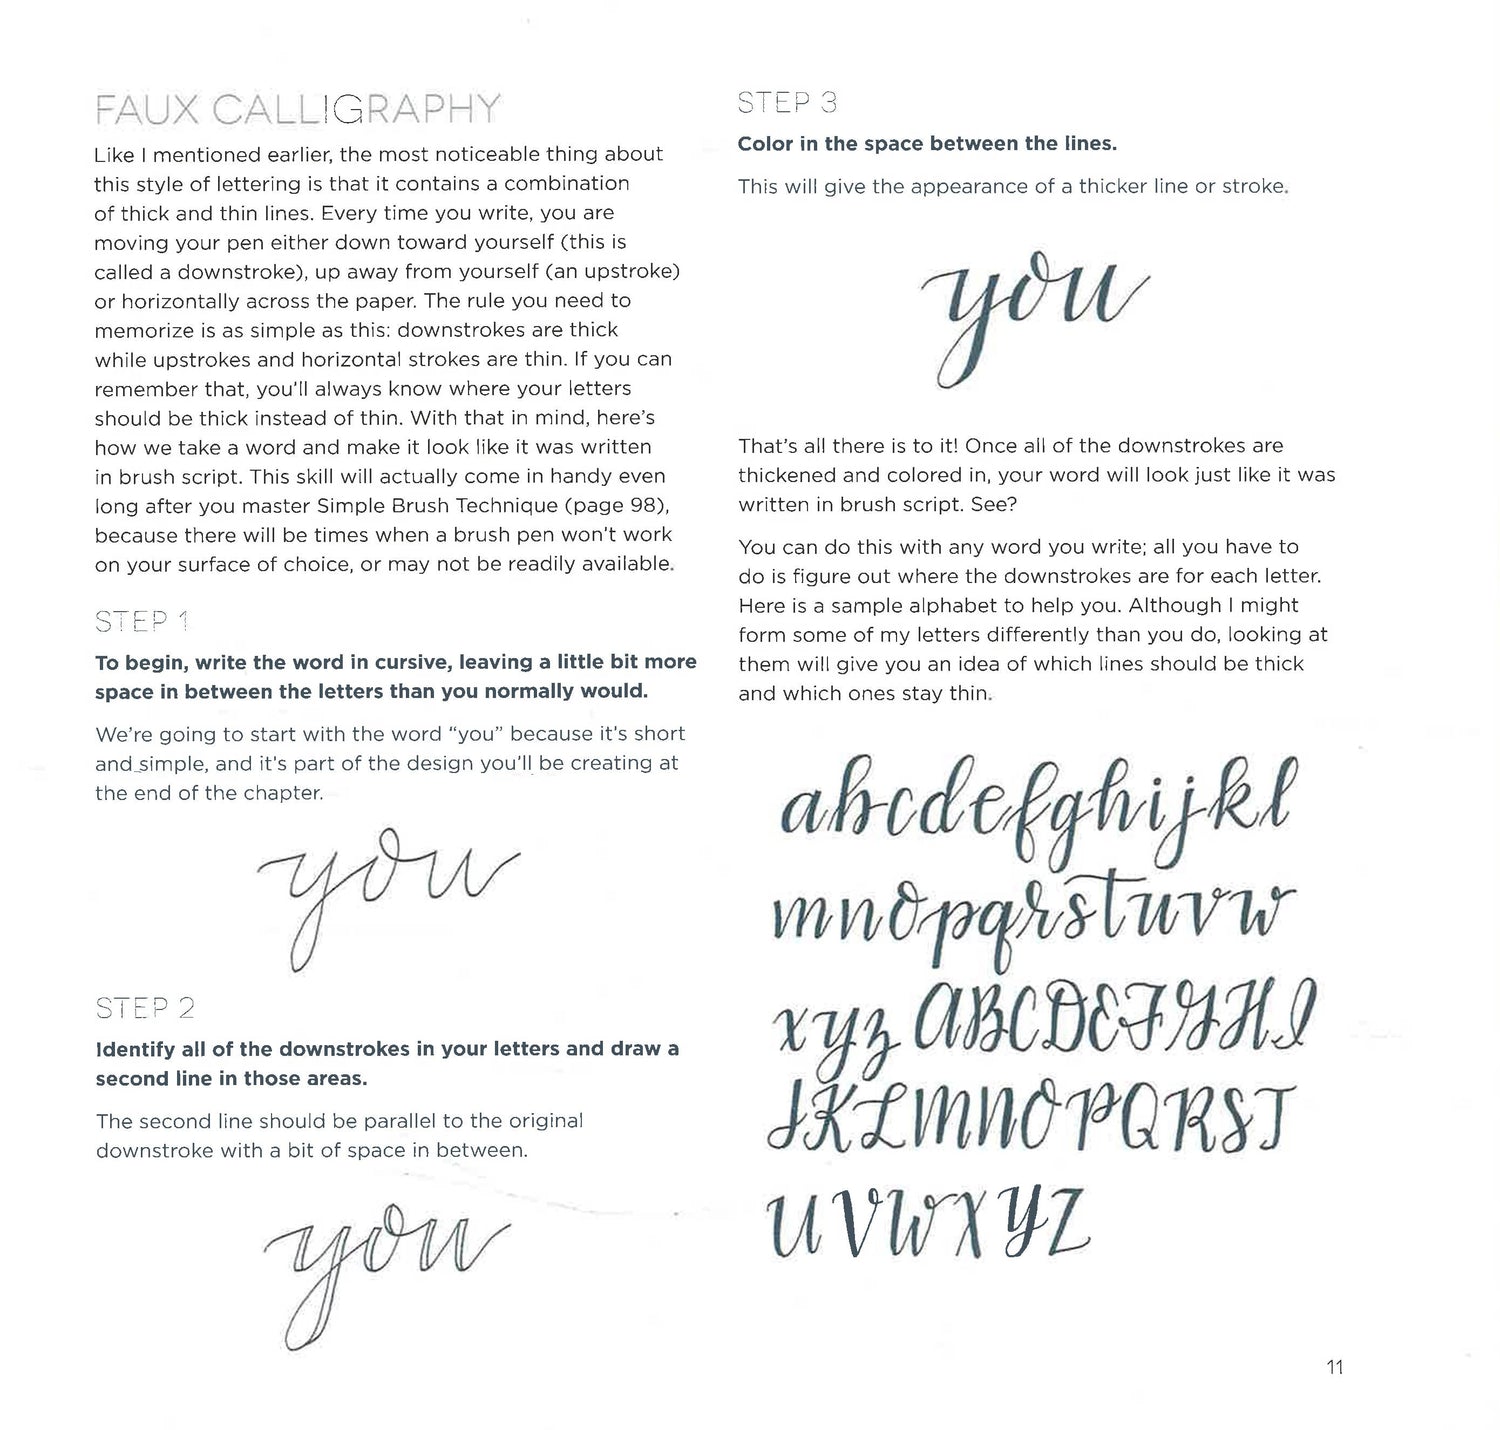 FAUX CALLIGRAPHY
Like I mentioned earlier, the most noticeable thing about
this style of lettering is that it contains a combination
of thick and thin lines. Every time you write, you are
moving your pen either down toward yourself (this is
called a downstroke), up away from yourself (an upstroke)
or horizontally across the paper. The rule you need to
memorize is as simple as this: downstrokes are thick
while upstrokes and horizontal strokes are thin. If you can
remember that, you'll always know where your letters
should be thick instead of thin. With that in mind, here's
how we take a word and make it look like it was written
in brush script. This skill will actually come in handy even
long after you master Simple Brush Technique (page 98),
because there will be times when a brush pen won't work
on your surface of choice, or may not be readily available.
STEP 1
To begin, write the word in cursive, leaving a little bit more
space in between the letters than you normally would.
We're going to start with the word "you" because it's short
and simple, and it's part of the design you'll be creating at
the end of the chapter.
you
STEP 2
Identify all of the downstrokes in your letters and draw a
second line in those areas.
The second line should be parallel to the original
downstroke with a bit of space in between.
you
STEP 3
Color in the space between the lines.
This will give the appearance of a thicker line or stroke.
you
That's all there is to it! Once all of the downstrokes are
thickened and colored in, your word will look just like it was
written in brush script. See?
You can do this with any word you write; all you have to
do is figure out where the downstrokes are for each letter.
Here is a sample alphabet to help you. Although I might
form some of my letters differently than you do, looking at
them will give you an idea of which lines should be thick
and which ones stay thin.
abcdefghijkl
mnopqrstuvw
xyz ABCDEFGHI
JKLMNOPQRST
UVWXYZ
11